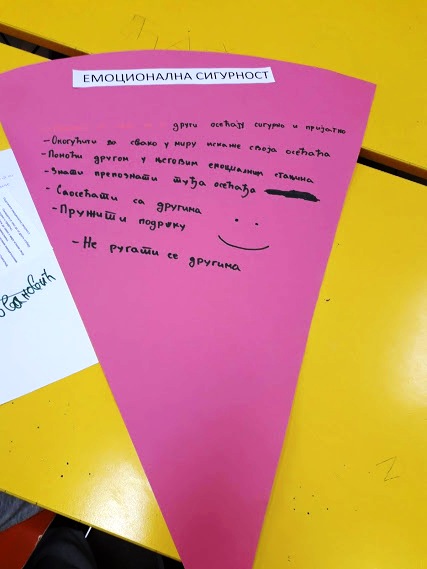 ЕМОЦИОНАЛНА СИГУРНОСТ
други осећају сигурно и пријатно
-Омогућити да свако у миру искаже своја осећања
-Помоћи другом у његовим емоционалним стањима
-Знати препознати туђа осећања
- Саосећати са другима
- Пружити подршку
- Не ругати се другима
ановић